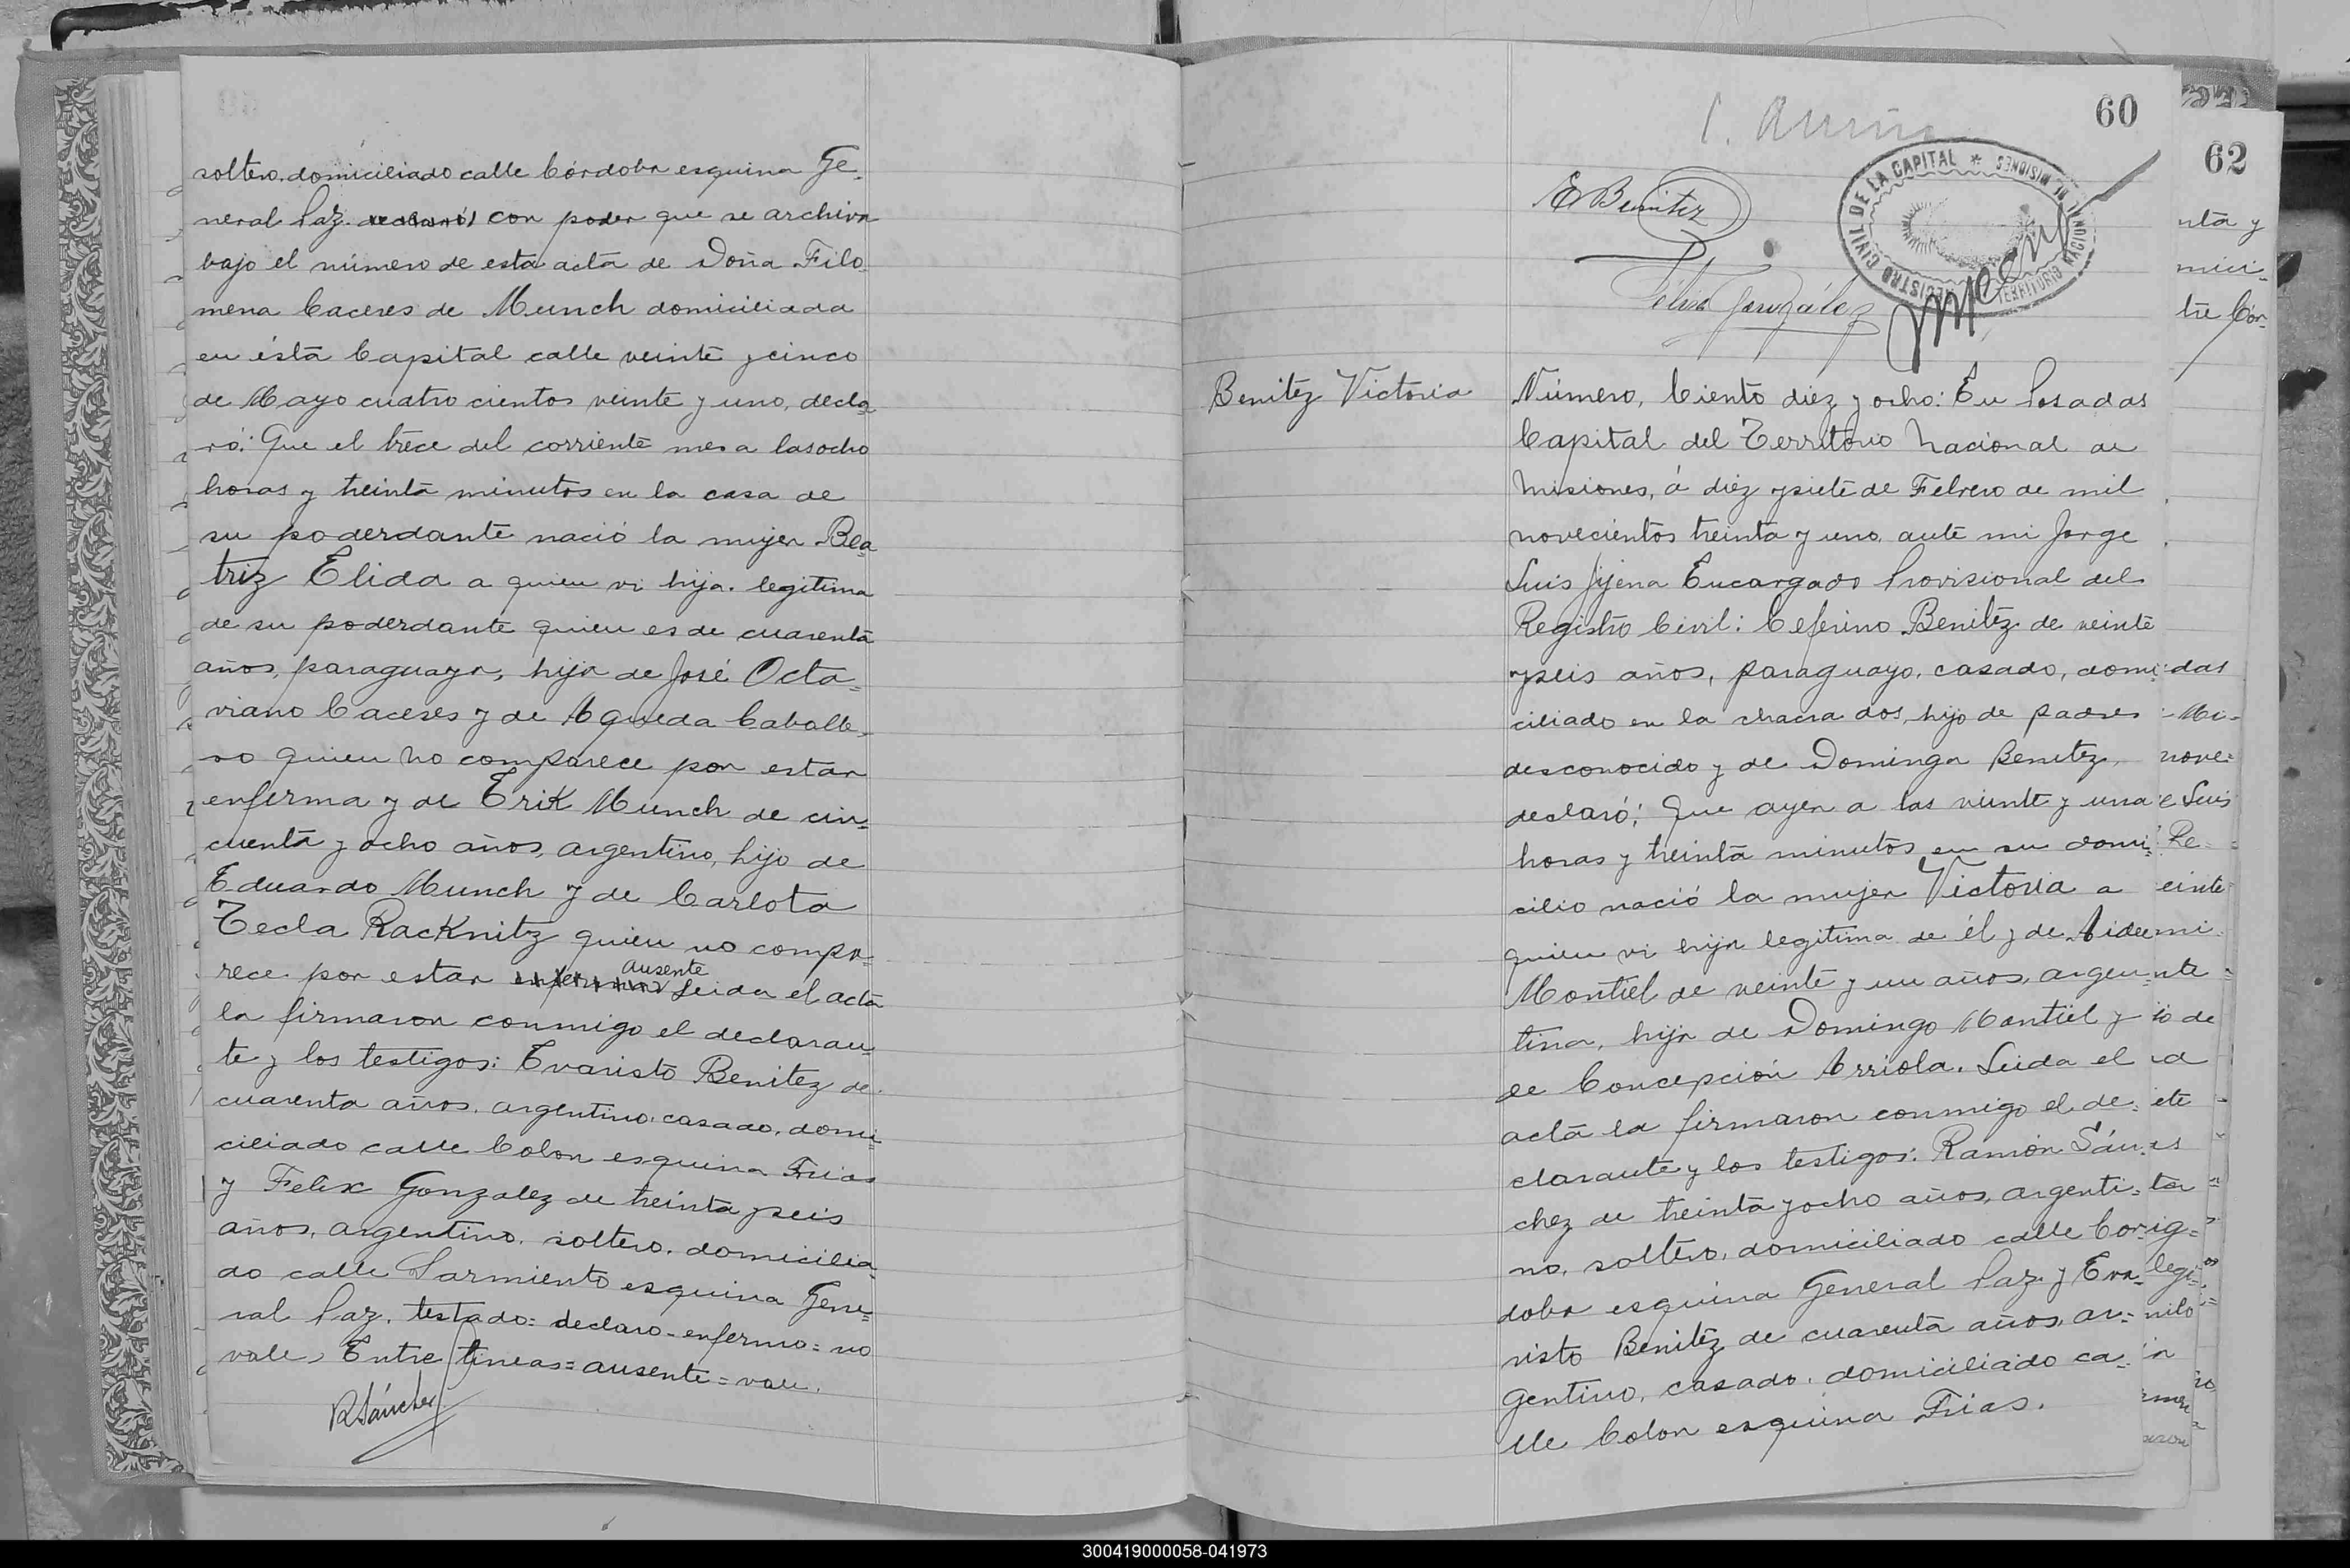 soltero, domiciliado calle Córdoba esquina Ge-
neral Paz. declaró con poder que se archiva
bajo el número de esta acta de Doña Filo-
mena Caceres de Munch domiciliada
en ésta Capital calle veinte y cinco
de Mayo cuatro cientos veinte y uno, decla
ró: Que el trece del corriente mes a las ocho
horas y treinta minutos en la casa de
su poderdante nació la mujer Bea
triz Elida a quien vi hija legitima
de su poderdante quien es de cuarenta
años, paraguaya, hija de José Octa-
viano Caceres y de Agueda Caballe-
ro quien no comparece por estar
enferma y de Erik Munch de cin-
cuenta y ocho años, argentino, hijo de
Eduardo Munch y de Carlota
Tecla Racknitz quien no compa-
ausente
rece por estar enfermo Leida el acta
la firmaron conmigo el declaran-
te y los testigos: Evaristo Benitez de
cuarenta años, argentino, casado, domi-
ciliado calle Colon esquina Frias
y Felix Gonzalez de treinta y seis
años, argentino, soltero, domicilia-
do calle Sarmiento esquina Gene-
ral Paz. testado= declaro-enfermo= no
vale, Entre lineas= ausente= vale.
RSánchez
60
E Benitez
REGISTRO CIVIL DE LA CAPITAL * TERRITORIO NACIONAL DE MISIONES
Félix González
Benitez Victoria
Número, Ciento diez y ocho: En Posadas
Capital del Territorio Nacional de
Misiones, á diez y siete de Febrero de mil
novecientos treinta y uno, ante mi Jorge
Luis Jijena Encargado Provisional del
Registro Civil: Ceferino Benitez de veinte
y seis años, paraguayo, casado, domi
ciliado en la chacra dos, hijo de padre
desconocido y de Dominga Benitez,
declaró: Que ayer a las veinte y una
horas y treinta minutos en su domi-
cilio nació la mujer Victoria a
quien vi hija legitima de él y de Aidee
Montiel de veinte y un años, argen-
tina, hija de Domingo Montiel y
de Concepción Arriola. Leida el
acta la firmaron conmigo el de-
clarante y los testigos: Ramón Sán-
chez de treinta y ocho años, argenti-
no, soltero, domiciliado calle Cor-
doba esquina General Paz y Eva-
risto Benitez de cuarenta años, ar-
gentino, casado, domiciliado ca-
lle Colon esquina Frias.
62
nta y
mici-
tre Cór-
das
Mi-
nove-
e Luis
Re-
einte
mi
nte
io de
ete
tar
ig-
legi-
300419000058-041973